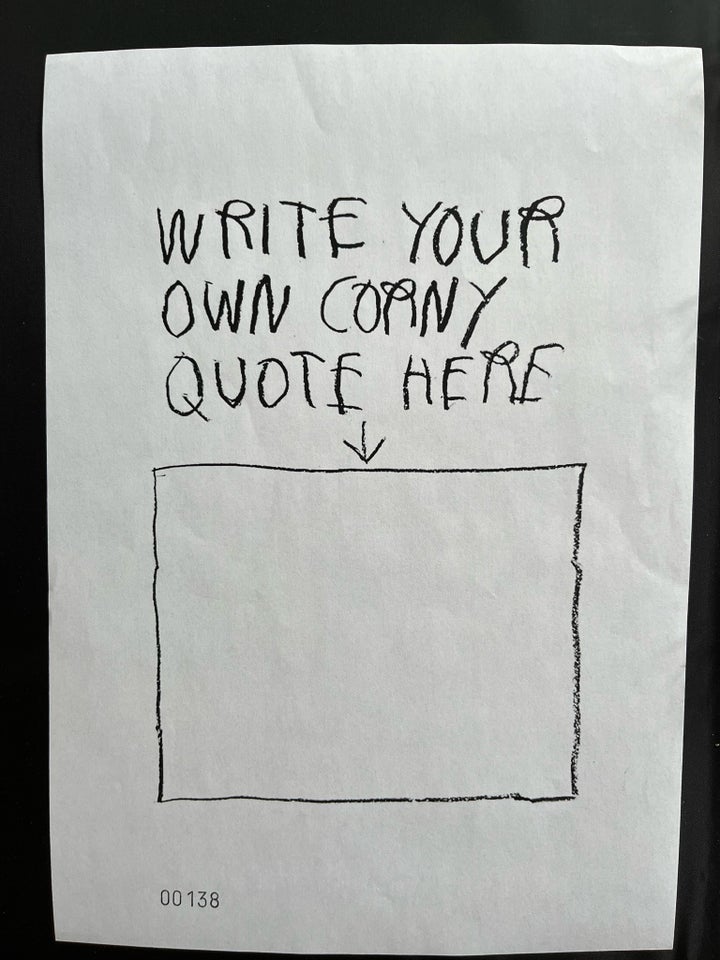 WRITE YOUR
OWN CORNY
QUOTE HERE
00138